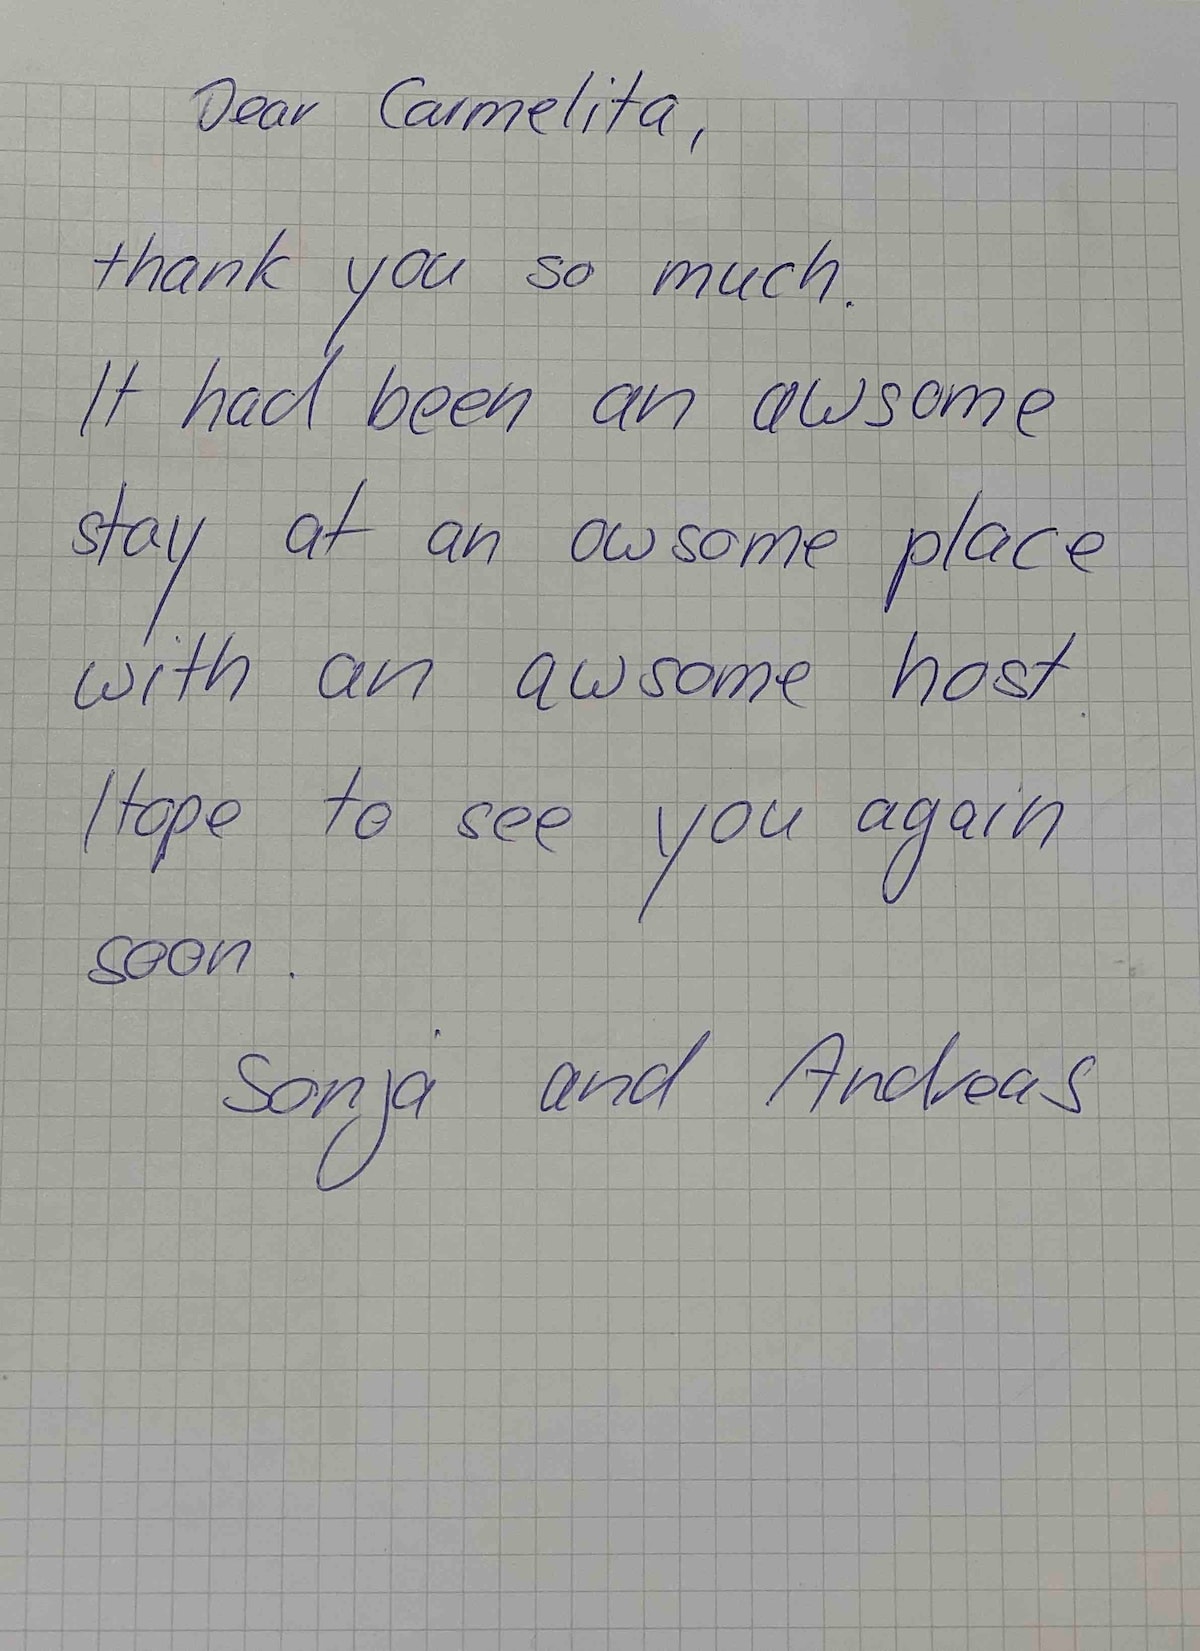 Dear Carmelita,
thank you so much.
It had been an awsome
stay at an awsome place
with an awsome host.
Hope to see you again
soon.
Sonja and Andreas